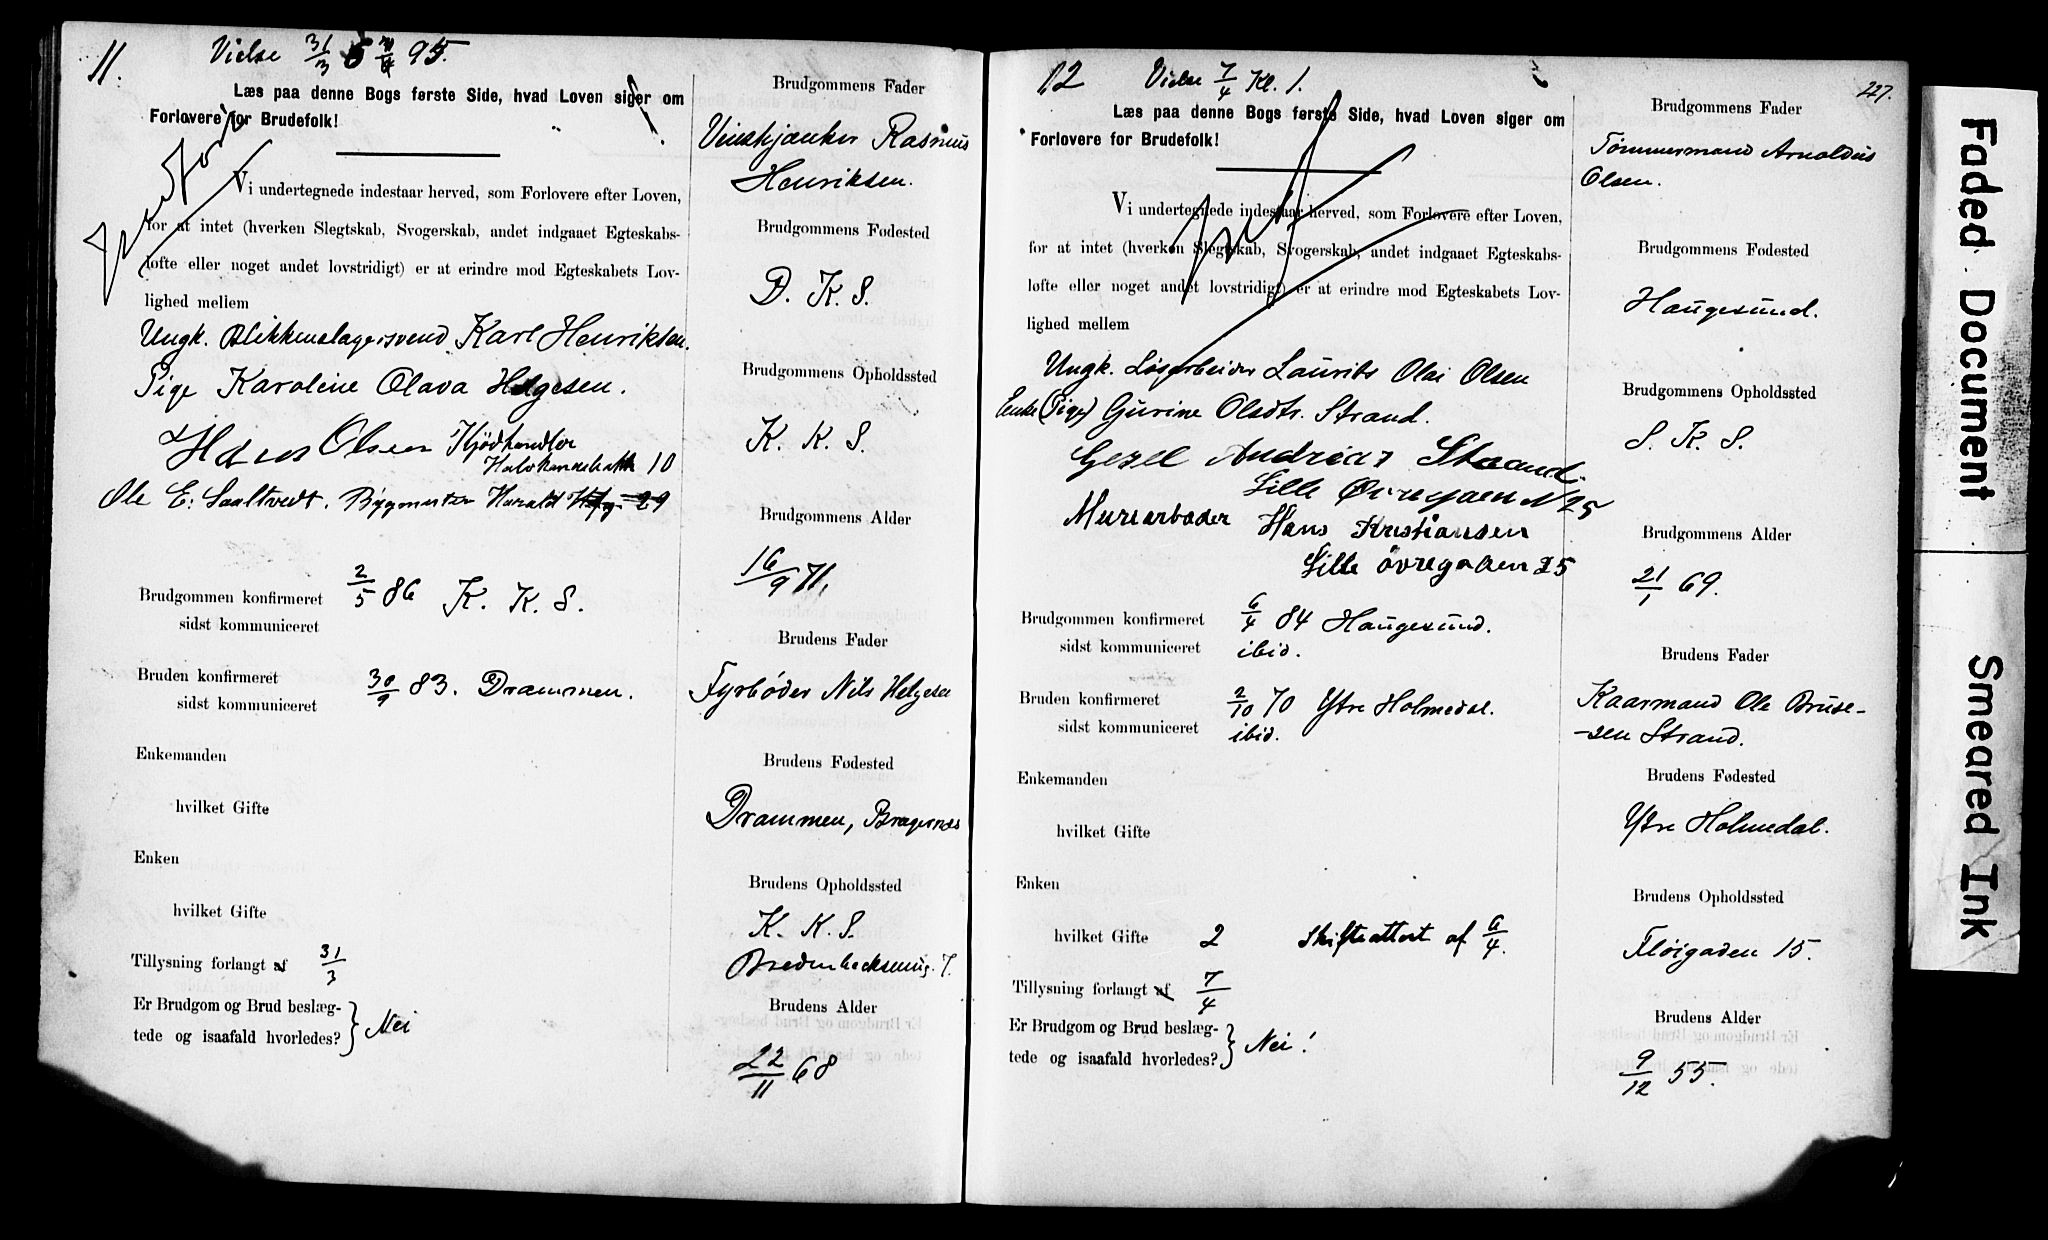 11.
Vielse 31/3 95.
Læs paa denne Bogs første Side, hvad Loven siger om
Forlovere for Brudefolk!
Vi undertegnede indestaar herved, som Forlovere efter Loven,
for at intet (hverken Slegtskab, Svogerskab, andet indgaaet Egteskabs-
løfte eller noget andet lovstridigt) er at erindre mod Egteskabets Lov-
lighed mellem
Ungk. Blikkenslagersvend Karl Henriksen.
Pige Karoline Olava Helgesen.
Hans Olsen Kjødhandler
10
Ole E: Saltvedt. Bygmester Harald 29
Brudgommen konfirmeret 2/5 86 K. K. S.
sidst kommuniceret
Bruden konfirmeret 30/9 83. Drammen.
sidst kommuniceret
Enkemanden
hvilket Gifte
Enken
hvilket Gifte
Tillysning forlangt af 31/3
Er Brudgom og Brud beslæg-
tede og isaafald hvorledes? } Nei
Brudgommens Fader
Vinskjænker Rasmus
Henriksen.
Brudgommens Fødested
D. K. S.
Brudgommens Opholdssted
K. K. S.
Brudgommens Alder
16/9 71,
Brudens Fader
Fyrbøder Nils Helgesen
Brudens Fødested
Drammen, Bragernes
Brudens Opholdssted
K. K. S.
7.
Brudens Alder
22/11 68
12
Vielse 7/4 Kl. 1.
227.
Læs paa denne Bogs første Side, hvad Loven siger om
Forlovere for Brudefolk!
Vi undertegnede indestaar herved, som Forlovere efter Loven,
for at intet (hverken Slegtskab, Svogerskab, andet indgaaet Egteskabs-
løfte eller noget andet lovstridigt) er at erindre mod Egteskabets Lov-
lighed mellem
Ungk. Løsarbeider Laurits Olai Olsen
Enke (Pige) Gurine Olsdtr. Strand.
Gesel Andreas Straand.
Lille Øvregaen N 25
Murerarbader Hans Kristiansen
Lille övregaden 25
Brudgommen konfirmeret 6/4 84 Haugesund.
sidst kommuniceret ibid.
Bruden konfirmeret 2/10 70 Ytre Holmedal.
sidst kommuniceret ibid.
Enkemanden
hvilket Gifte
Enken
hvilket Gifte 2 Skifteattest af 6/4.
Tillysning forlangt af 7/4
Er Brudgom og Brud beslæg-
tede og isaafald hvorledes? } Nei!
Brudgommens Fader
Tømmermand Arnoldus
Olsen.
Brudgommens Fødested
Haugesund.
Brudgommens Opholdssted
S. K. S.
Brudgommens Alder
21/1 69.
Brudens Fader
Kaarmand Ole Bruse-
-sen Strand.
Brudens Fødested
Ytre Holmedal.
Brudens Opholdssted
Fløigaden 15.
Brudens Alder
9/12 55.
Faded Document
Smeared Ink